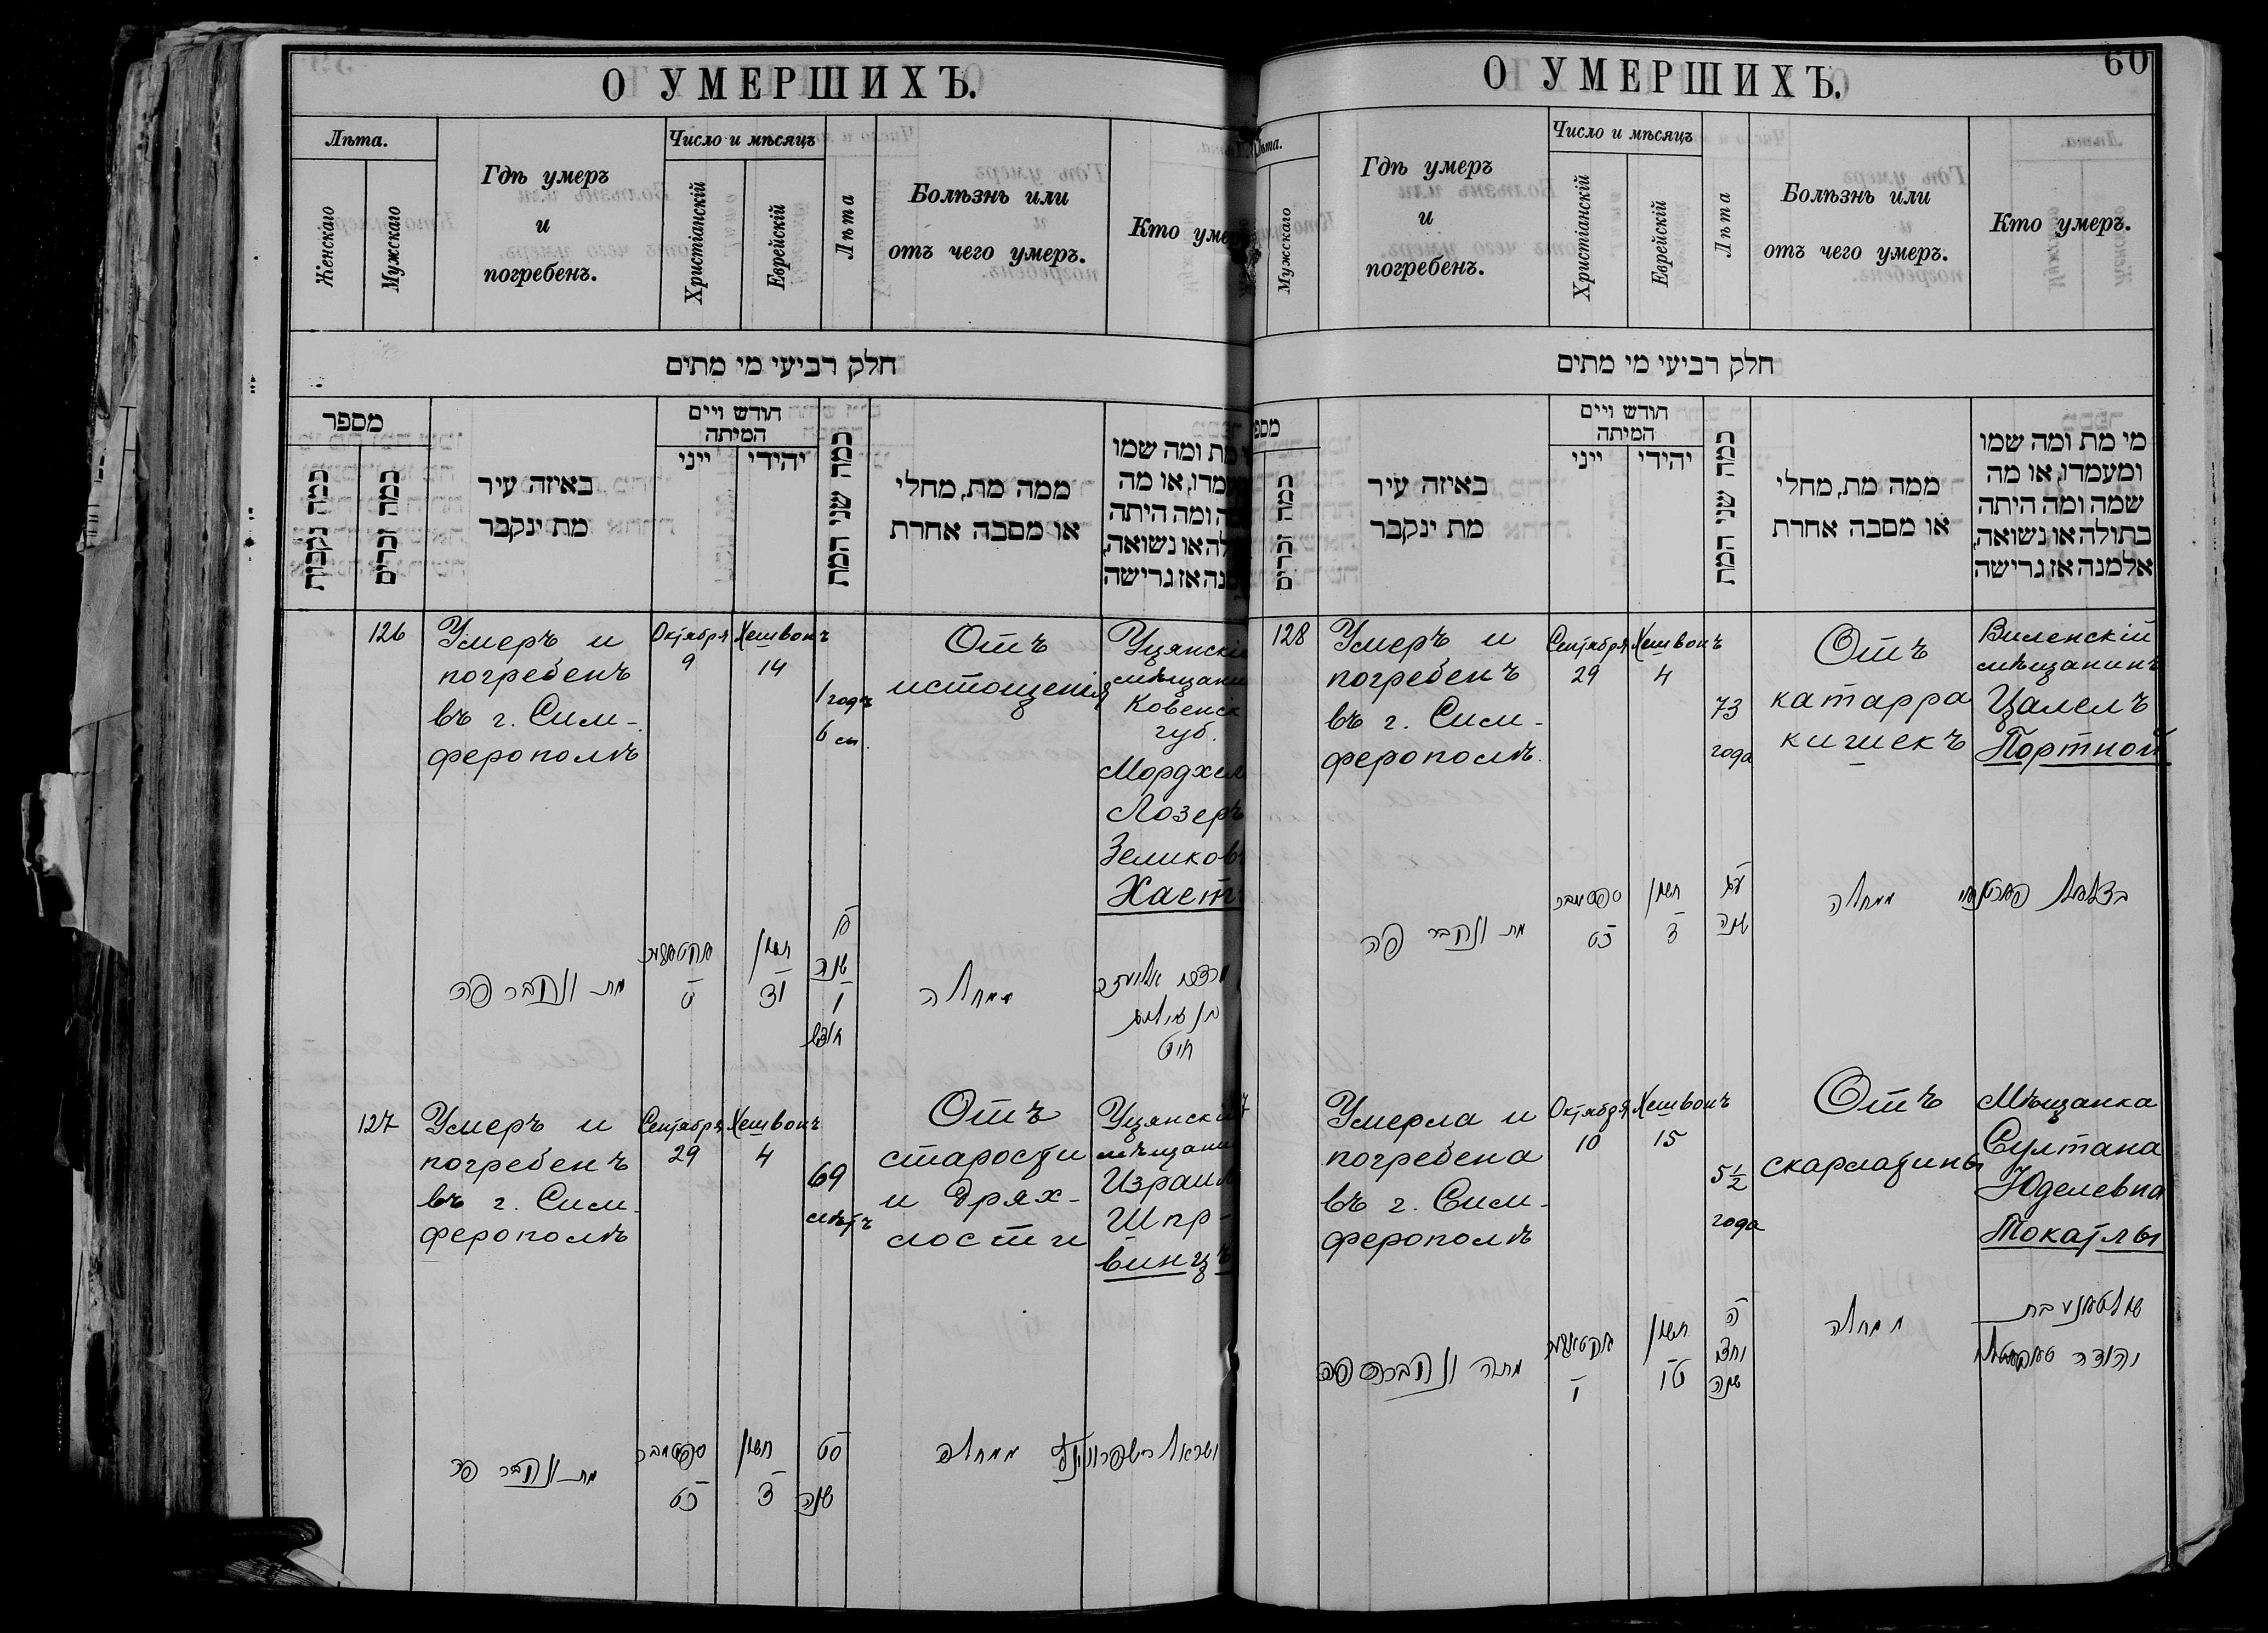 О УМЕРШИХЪ.
Лѣта.
Женскаго
Мужскаго
Гдѣ умеръ
и
погребенъ.
Число и мѣсяцъ
Христіанскій
Еврейскій
Лѣта
Болѣзнь или
отъ чего умеръ.
Кто умеръ
חלק רביעי מי מתים
מספר
כמה נקבות
כמה זכרים
באיזה עיר
מת ינקבר
חודש ויים
המיתה
ייני
יהידי
כמה שני המת
ממה מת, מחלי
או מסבה אחרת
מת ומה שמו
או מה
ומה היתה
או נשואה,
אז גרישה
126
Умеръ и
погребенъ
въ г. Сим-
ферополѣ
Октября
9
Хешвонъ
14
1 годъ
6 м.
Отъ
истощенія
Уцянскій
мѣщани
Ковенск
губ.
Мордхел
Лозеръ
Зеликов
Хаетъ
מת ונקבר פה
ט
חשון
יד
שנה
ו
חודש
ממחלה
127
Умеръ и
погребенъ
въ г. Сим-
ферополѣ
Сентября
29
Хешвонъ
4
69
лѣтъ
Отъ
старости
и дрях-
лости
Уцянскій
мѣщани
Израиль
Шпр-
винцъ
מת ונקבר פה
ספטמבר
כט
חשון
ד
סט
שנה
ממחלה
ישראל
О УМЕРШИХЪ.
60
Лѣта.
Мужскаго
Гдѣ умеръ
и
погребенъ.
Число и мѣсяцъ
Христіанскій
Еврейскій
Лѣта
Болѣзнь или
отъ чего умеръ.
Кто умеръ.
חלק רביעי מי מתים
מספ
כמה זכרים
באיזה עיר
מת ינקבר
חודש ויים
המיתה
ייני
יהידי
כמה שני המת
ממה מת, מחלי
או מסבה אחרת
מי מת ומה שמו
ומעמדו, או מה
שמה ומה היתה
בתולה או נשואה,
אלמנה אז גרישה
128
Умеръ и
погребенъ
въ г. Сим-
ферополѣ.
Сентября
29
Хешвонъ
4
73
года
Отъ
катарра
кишекъ
Виленскій
мѣщанинъ
Цалелъ
Портной
מת ונקבר פה
ספטמבר
כט
חשון
ד
עג
שנה
ממחלה
בצלאל
Умерла и
погребена
въ г. Сим-
ферополѣ
Октября
10
Хешвонъ
15
5 1/2
года
Отъ
скарлатины
Мѣщанка
Султана
Юделевна
Токатлы
מתה ונקברה פה
י
חשון
טו
ה
וחצי
שנה
ממחלה
בת
יהודה